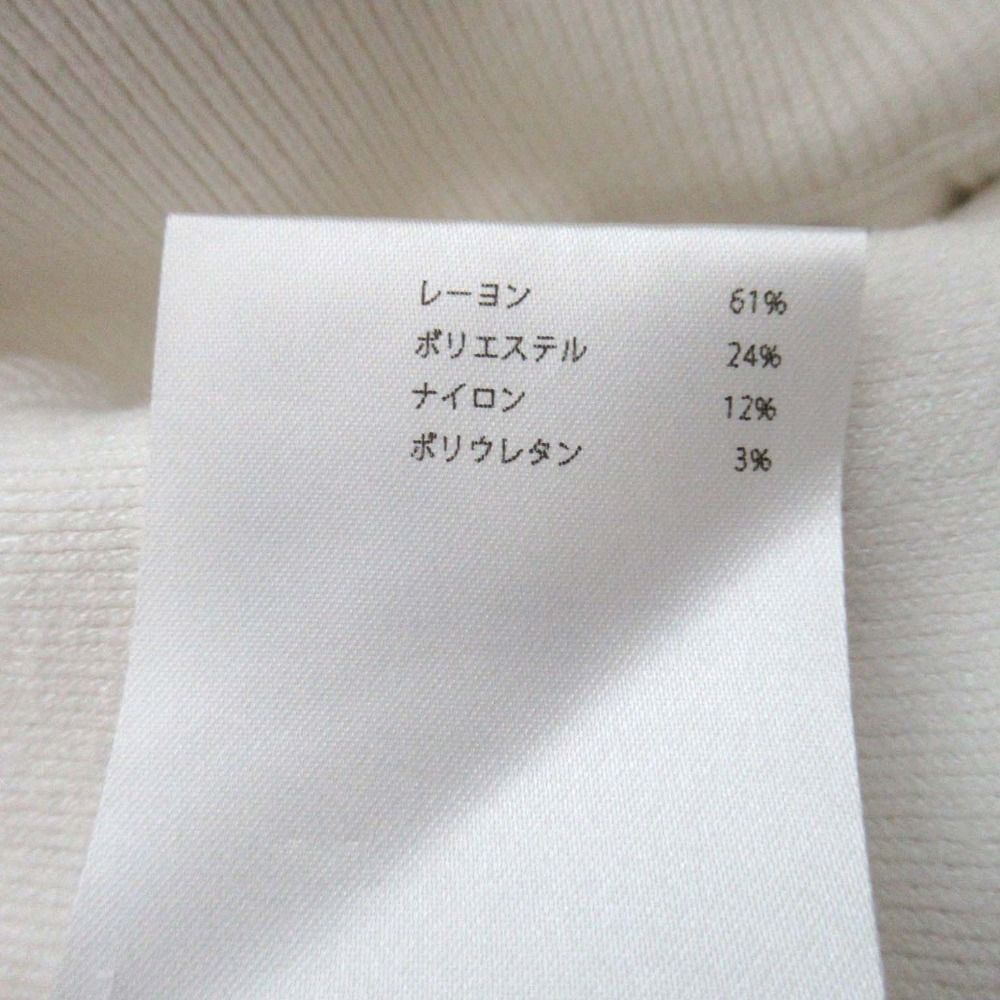 レーヨン 61%
ポリエステル 24%
ナイロン 12%
ポリウレタン 3%